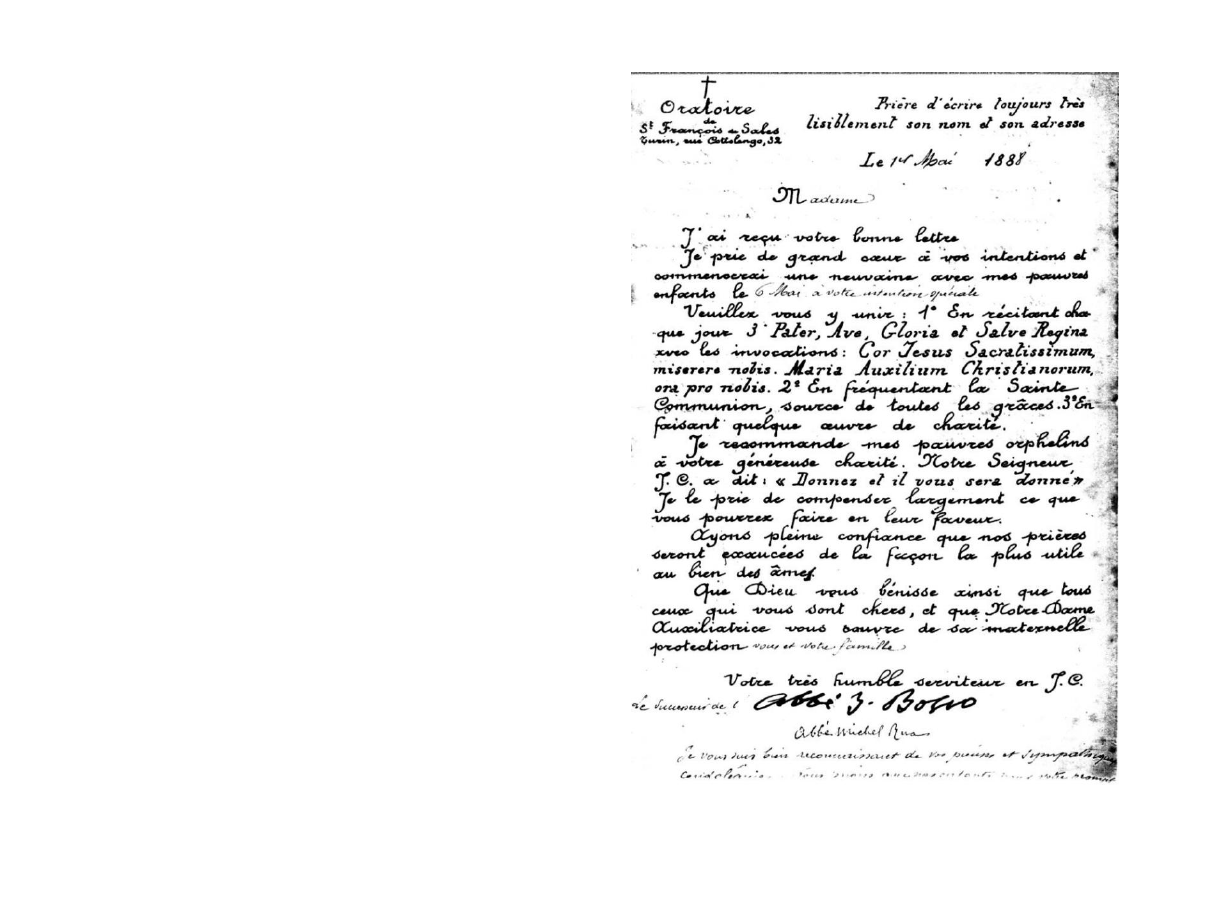 Oratoire
de
St François de Sales
Turin, rue Cottolengo, 32
Prière d'écrire toujours très
lisiblement son nom et son adresse
Le 1er Mai 1888
Madame
J'ai reçu votre bonne lettre
Je prie de grand cœur à vos intentions et
commencerai une neuvaine avec mes pauvres
enfants le 6 Mai à votre intention spéciale
Veuillez vous y unir : 1° En récitant cha
que jour 3 Pater, Ave, Gloria et Salve Regina
avec les invocations : Cor Jesus Sacratissimum,
miserere nobis. Maria Auxilium Christianorum,
ora pro nobis. 2° En fréquentant la Sainte
Communion, source de toutes les grâces. 3° En
faisant quelque œuvre de charité.
Je recommande mes pauvres orphelins
à votre généreuse charité. Notre Seigneur
J. C. a dit : « Donnez et il vous sera donné »
Je le prie de compenser largement ce que
vous pourrez faire en leur faveur.
Ayons pleine confiance que nos prières
seront exaucées de la façon la plus utile
au bien des âmes.
Que Dieu vous bénisse ainsi que tous
ceux qui vous sont chers, et que Notre-Dame
Auxiliatrice vous couvre de sa maternelle
protection vous et votre famille
Votre très humble serviteur en J. C.
Le Successeur de l' Abbé J. Bosco
Abbé Michel Rua
Je vous suis bien reconnaissant de vos pieuses et sympathiques
condoléances